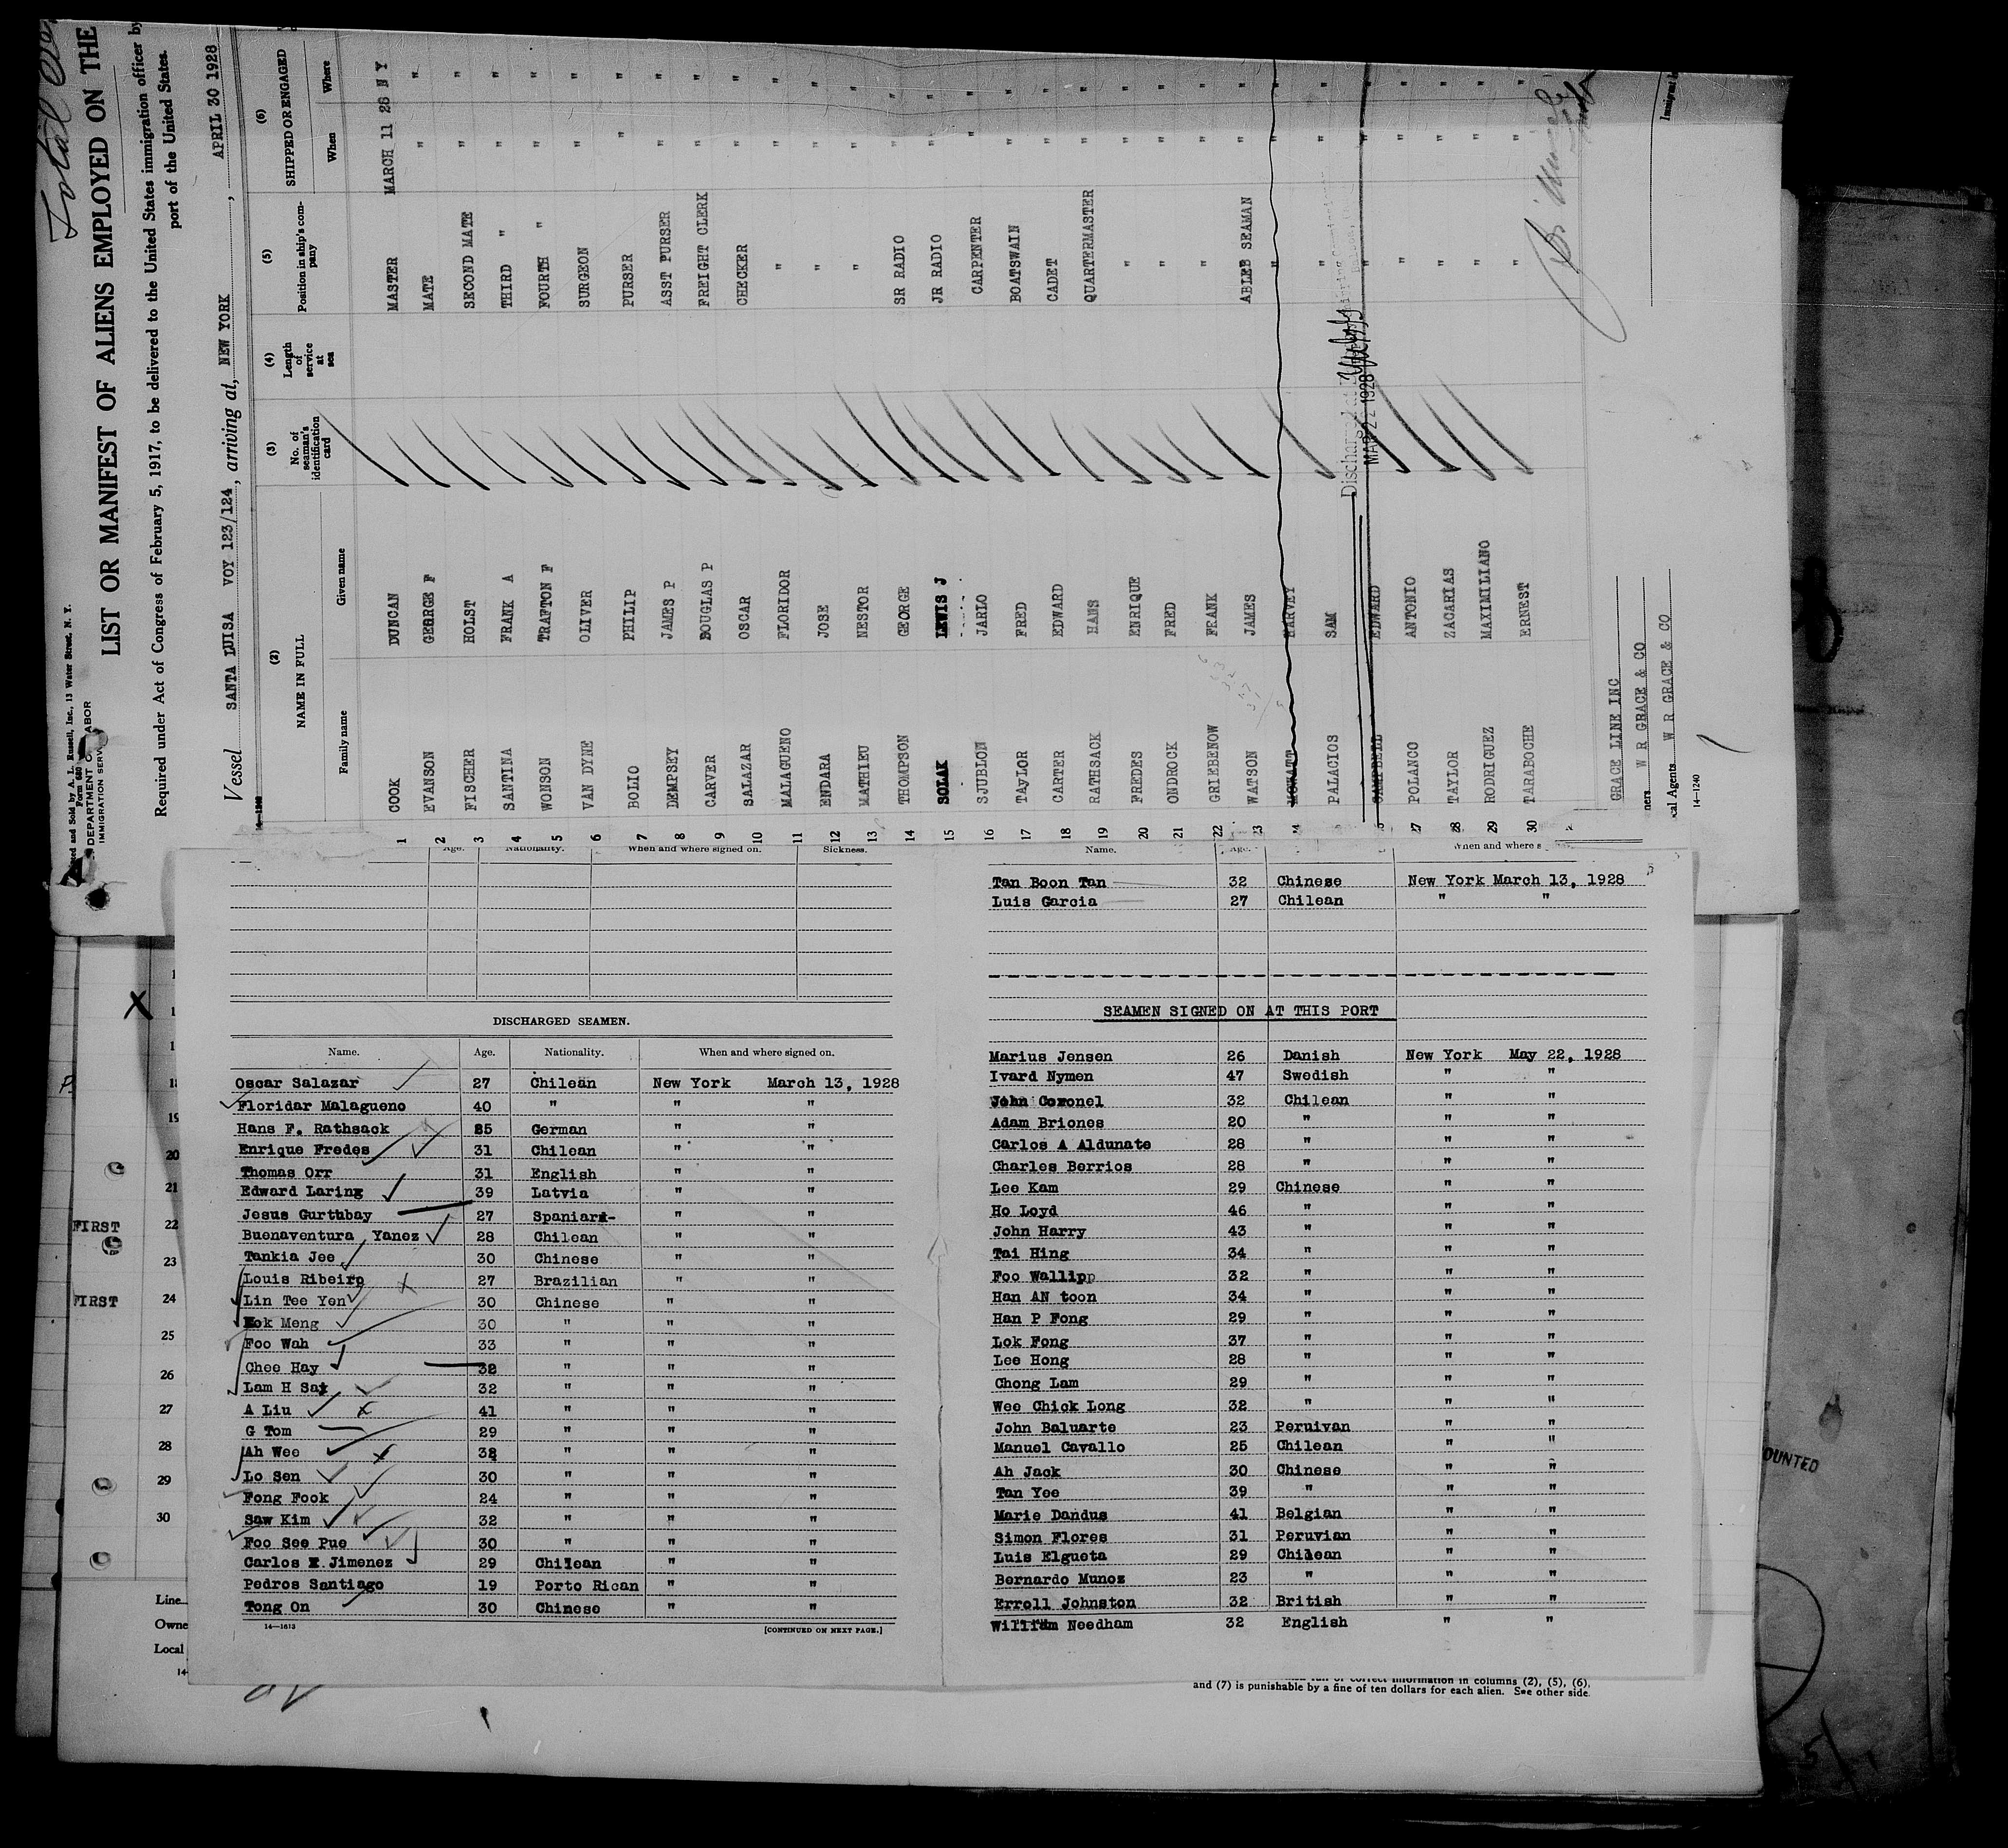 Total
Printed and Sold by A. L. Russell, Inc., 13 Water Street, N. Y.
Form 680
DEPARTMENT OF LABOR
IMMIGRATION SERVICE
LIST OR MANIFEST OF ALIENS EMPLOYED ON THE
Required under Act of Congress of February 5, 1917, to be delivered to the United States immigration officer by
port of the United States.
Vessel SANTA LUISA VOY 123/124, arriving at, NEW YORK, APRIL 30 1928
14—1240
(2) (3) (4) (5) (6)
NAME IN FULL No. of seaman's identification card Length of service at sea Position in ship's company SHIPPED OR ENGAGED
Family name Given name When Where
1 COOK DUNCAN MASTER MARCH 11 28 N Y
2 EVANSON GEORGE F MATE " "
3 FISCHER HOLST SECOND MATE " "
4 SANTINA FRANK A THIRD " " "
5 WONSON TRAFTON F FOURTH " " "
6 VAN DYNE OLIVER SURGEON " "
7 BOLIO PHILIP PURSER " "
8 DEMPSEY JAMES P ASST PURSER " "
9 CARVER DOUGLAS P FREIGHT CLERK " "
10 SALAZAR OSCAR CHECKER " "
11 MALAGUENO FLORIDOR " " "
12 ENDARA JOSE " " "
13 MATHIEU NESTOR " " "
14 THOMPSON GEORGE SR RADIO " "
15 SOLAK LEWIS J JR RADIO " "
16 SJUBLON JARLO CARPENTER "
17 TAyLOR FRED BOATSWAIN " "
18 CARTER EDWARD CADET " "
19 RATHSACK HANS QUARTERMASTER " "
20 FREDES ENRIQUE " " "
21 ONDROCK FRED " " "
22 GRIEBENOW FRANK " " "
23 WATSON JAMES ABLEB SEAMAN " "
24 MOWATT HARVEY " " "
PALACIOS SAM " " "
CAMPBELL EDWARD " " "
Discharged at
MAR 22 1928
27 POLANCO ANTONIO " " "
28 TAYLOR ZACARIAS " " "
29 RODRIGUEZ MAXIMILIANO " " "
30 TARABOCHE ERNEST " " "
GRACE LINE INC
ners W R GRACE & CO
cal Agents W R GRACE & CO
14—1240
Immigrant
Age. Nationality. When and where signed on. Sickness.
DISCHARGED SEAMEN.
Name. Age. Nationality. When and where signed on.
Oscar Salazar 27 Chilean New York March 13, 1928
Floridar Malagueno 40 " " "
Hans F. Rathsack 35 German " "
Enrique Fredes 31 Chilean " "
Thomas Orr 31 English " "
Edward Laring 39 Latvia " "
Jesus Gurthbay 27 Spaniard- " "
Buenaventura Yanez 28 Chilean " "
Tankia Jee 30 Chinese " "
Louis Ribeiro 27 Brazilian " "
Lin Tee Yen 30 Chinese " "
Kok Meng 30 " " "
Foo Wah 33 " " "
Chee Hay 32 " " "
Lam H Sat 32 " " "
A Liu 41 " " "
G Tom 29 " " "
Ah Wee 32 " " "
Lo Sen 30 " " "
Fong Fook 24 " " "
Saw Kim 32 " " "
Foo See Pue 30 " " "
Carlos E. Jimenez 29 Chilean " "
Pedros Santiago 19 Porto Rican " "
Tong On 30 Chinese " "
14—1613
[CONTINUED ON NEXT PAGE.]
Name.
Tan Boon Tan 32 Chinese New York March 13, 1928
Luis Garcia 27 Chilean " "
SEAMEN SIGNED ON AT THIS PORT
Marius Jensen 26 Danish New York May 22, 1928
Ivard Nymen 47 Swedish " "
John Coronel 32 Chilean " "
Adam Briones 20 " " "
Carlos A Aldunate 28 " " "
Charles Berrios 28 " " "
Lee Kam 29 Chinese " "
Ho Loyd 46 " " "
John Harry 43 " " "
Tai Hing 34 " " "
Foo Wallipp 32 " " "
Han AN toon 34 " " "
Han P Fong 29 " " "
Lok Fong 37 " " "
Lee Hong 28 " " "
Chong Lam 29 " " "
Wee Chick Long 32 " " "
John Baluarte 23 Peruivan " "
Manuel Cavallo 25 Chilean " "
Ah Jack 30 Chinese " "
Tan Yee 39 " " "
Marie Dandus 41 Belgian " "
Simon Flores 31 Peruvian " "
Luis Elgueta 29 Chilean " "
Bernardo Munoz 23 " " "
Erroll Johnston 32 British " "
William Needham 32 English " "
X
18
19
20
21
FIRST 22
23
FIRST 24
25
26
27
28
29
30
Line
Owne
Local
14-
correct information in columns (2), (5), (6),
and (7) is punishable by a fine of ten dollars for each alien. See other side.
OUNTED